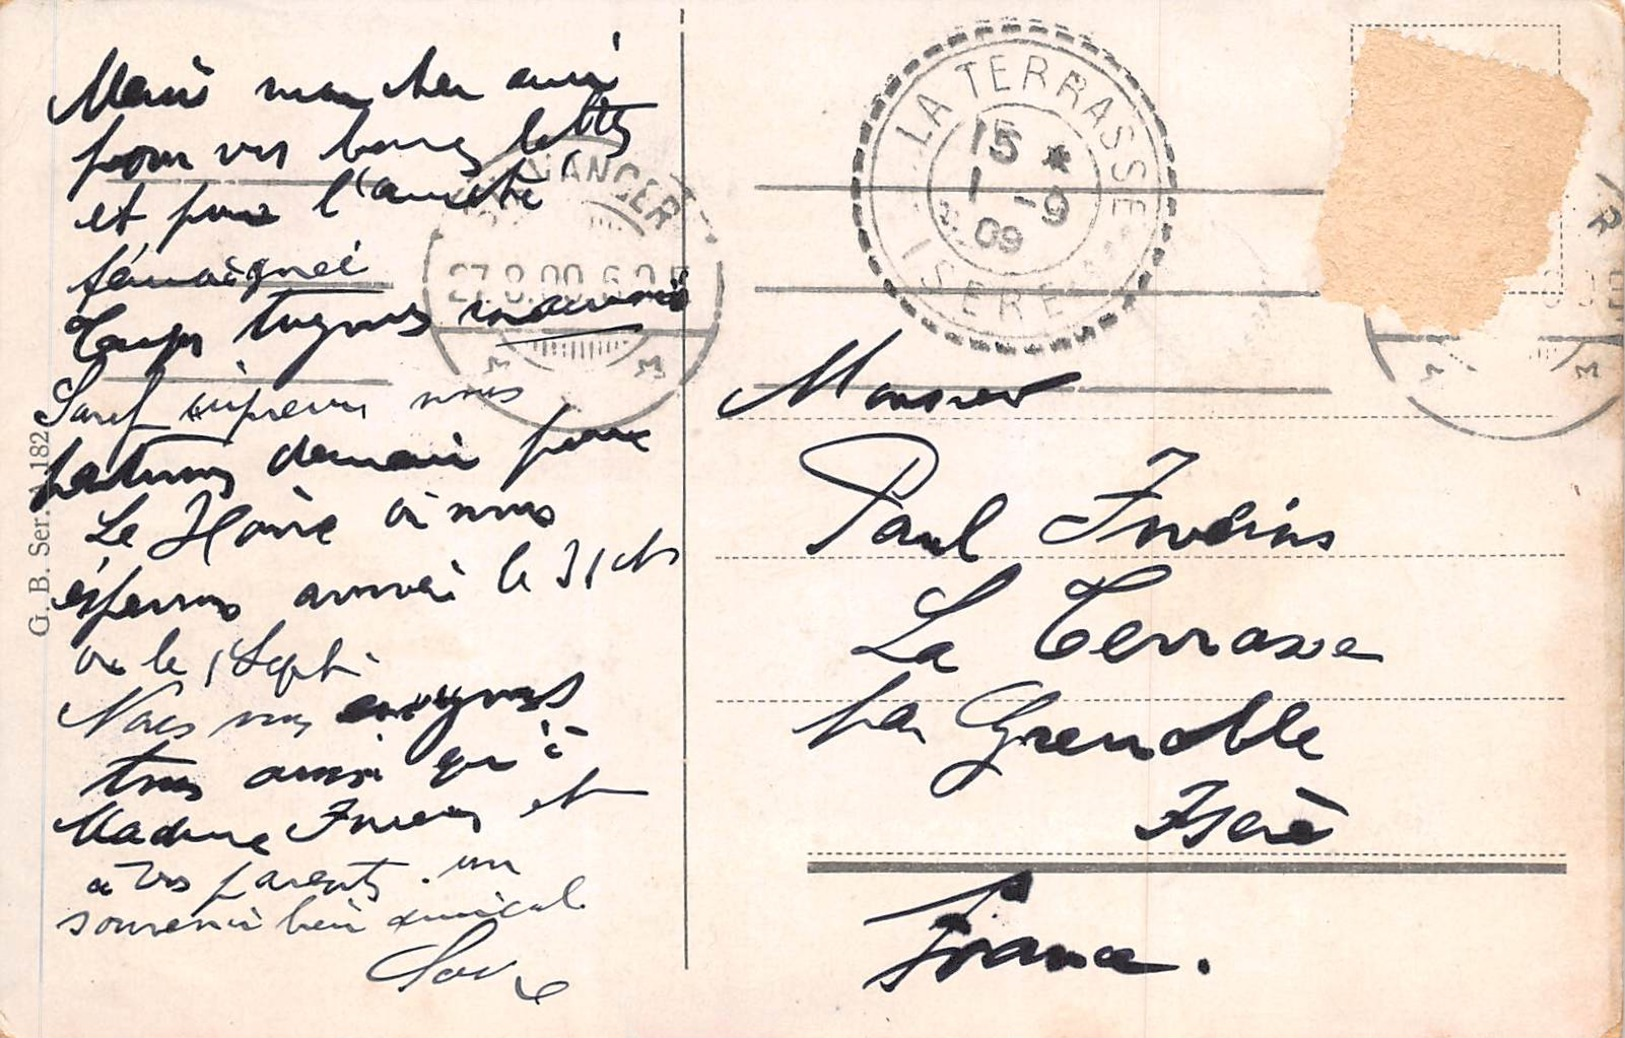 Merci mon cher ami
pour vos bonnes lettres
et pour l'amitié
témoignée
Temps toujours mauvais
Sauf imprévu nous
partons demain pour
Le Havre où nous
espérons arriver le 31 ct
ou le 1 Sept.
Nous vous envoyons
tous ainsi qu'à
Madame et
à vos parents. un
souvenir bien amical
G. B. Ser. 182
VANGER
27.8.09.6
LA TERRASSE
15 *
1 -9
09
ISERE
Monsieur
Paul
La Terrasse
par Grenoble
Isère
France.